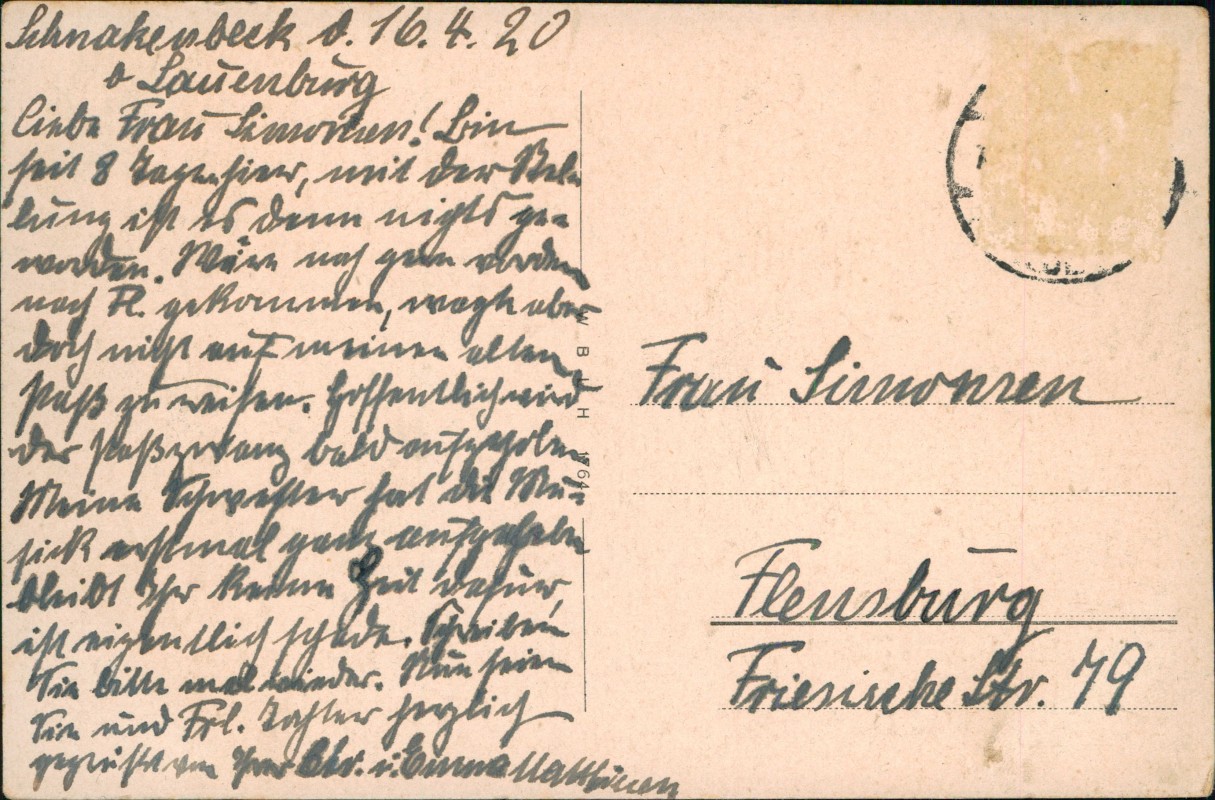 Schnakenbeck d. 16.4.20
b Lauenburg
Liebe Frau Simonsen! Bin
seit 8 Tagen hier, mit der Stel-
lung ist es denn nichts ge-
worden. Wäre noch gern
nach Fl. gekommen, wagte aber
doch nicht auf meinen alten
Paß zu reisen. Hoffentlich wird
der Paßzwang bald aufgehoben
Meine Schwester hat die Mu-
sick erstmal ganz aufgegeben
bleibt Ihr keine Zeit dafür,
ist eigentlich schade. Schreiben
Sie bitte mal wieder. Nun seien
Sie und Frl. Tochter herzlich
gegrüßt von Ihrer Chr. u. Emma Matthiesen
W B L H 1764
Frau Simonsen
Flensburg
Friesische Str. 79